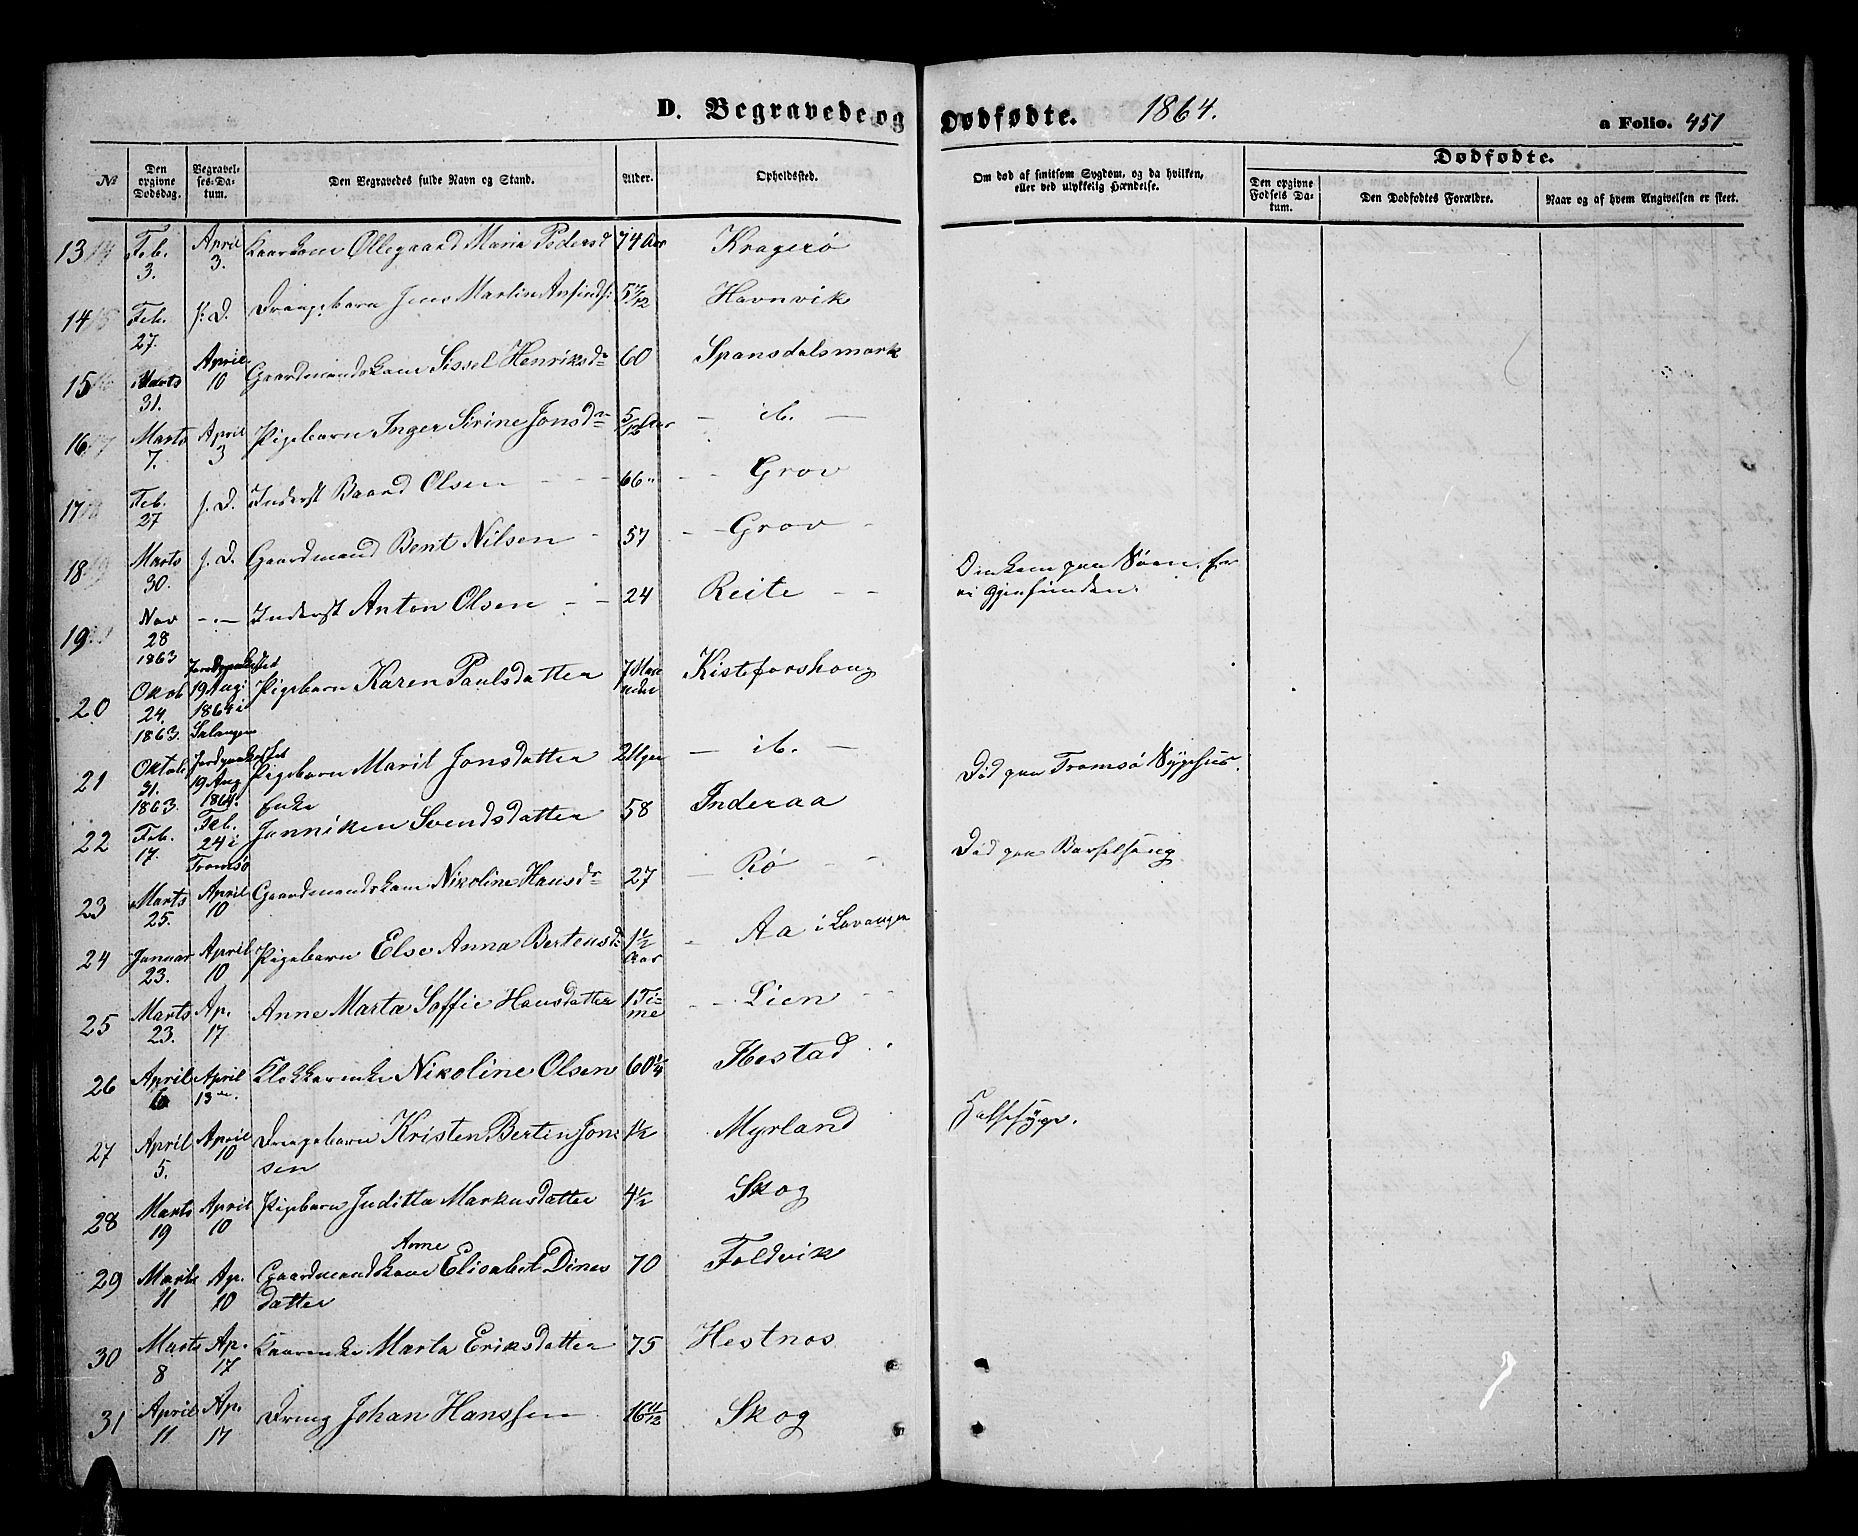 D. Begravede og Dødfødte. 1864. a Folio. 451
№ Den opgivne Dødsdag. Begravelses-Datum. Den Begravedes fulde Navn og Stand. Alder. Opholdssted. Om død af smitsom Sygdom, og da hvilken, eller ved ulykkelig Hændelse. Dødfødte. Den opgivne Fødsels Datum. Den Dødfødtes Forældre. Naar og af hvem Angivelsen er skeet.
13 Feb. 3. April 3. Kaarkone Ollegaard Maria Pedersd 74 Aar Kragerø
14 Feb. 27. s. D. Drengebarn Jens Martin Arfindss: 5 7/12 Havnvik
15 Marts 31. April 10 Gaardmandskone Sissel Henriksdr 60 Spansdalsmark
16 Marts 7. April 3 Pigebarn Inger Sirine Jonsdr 5/12 Aar — ib. —
17 Feb. 27 s. D. Inderst Baard Olsen 66 " Grov
18 Marts 30. s. D. Gaardmand Bent Nilsen 57 Grov
19 Nov 28 1863 - — Inderst Anton Olsen 24 Reite Omkom paa Søen, er ei gjenfunden.
20 Okob 24. 1863. Jordpaakastet 19 Aug: 1864 i Salangen Pigebarn Karen Paulsdatter 7 Maaneder Kistefoshoug
21 Oktob 31. 1863. Jordpaakastet 19 Aug 1864. Pigebarn Marit Jonsdatter 2 Uger — ib. —
22 Feb. 17. Feb. 24 i Tromsø Enke Janniken Svendsdatter 58 Inderaa Død paa Tromsø Sygehus.
23 Marts 25. April 10 Gaardmandskone Nikoline Hansdr 27 Rø Død paa Barselseng
24 Januar 23. April 10 Pigebarn Else Anna Bertensd: 1½ Aar Aa i Lavangen
25 Marts 23. Ap. 17 Anne Marta Soffie Hansdatter 1 Time Lien
26 April 6 April 13de. Klokkerenke Nikoline Olsen 60¼ Ibestad
27 April 5. April 10 Drengebarn Kristen Bertin Jonsen 1½ Myrland Halssyge.
28 Marts 19 April 10 Pigebarn Juditta Markusdatter 4½ Skog
29 Marts 11 Ap. 10 Gaardmandskone Anne Elisabet Dinesdatter 70 Foldvik
30 Marts 8 Ap. 17 Kaarenke Marta Eriksdatter 75 Hestnes
31 April 11 Ap. 17 Dreng Johan Hanssen 16 11/12 Skog